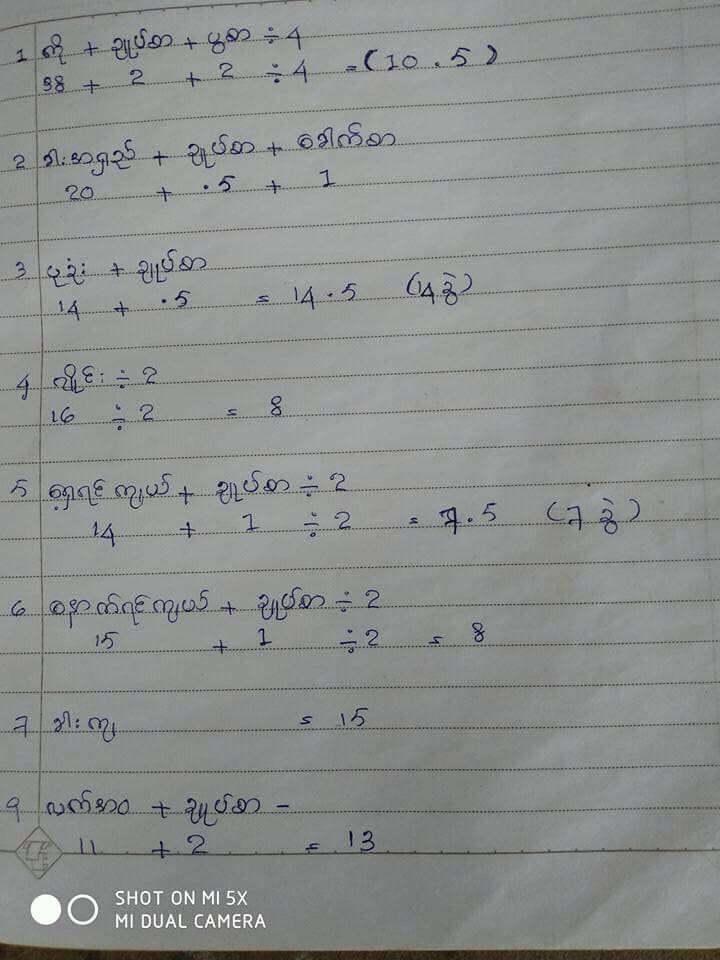 1 ကိုး + ချုပ်စာ + ပွစာ ÷ 4
38 + 2 + 2 ÷ 4 = (10.5)
2 ခါးအရှည် + ချုပ်စာ + ခေါက်စာ
20 + .5 + 1
3 ပုခုံး + ချုပ်စာ
14 + .5 = 14.5 (14 ခွဲ)
4 လျှိုင်း ÷ 2
16 ÷ 2 = 8
5 ရှေ့ရင်ကျယ် + ချုပ်စာ ÷ 2
14 + 1 ÷ 2 = 7.5 (7 ခွဲ)
6 နောက်ရင်ကျယ် + ချုပ်စာ ÷ 2
15 + 1 ÷ 2 = 8
7 ခါးကျ = 15
9 လက်အဝ + ချုပ်စာ -
11 + 2 = 13
SHOT ON MI 5X
MI DUAL CAMERA